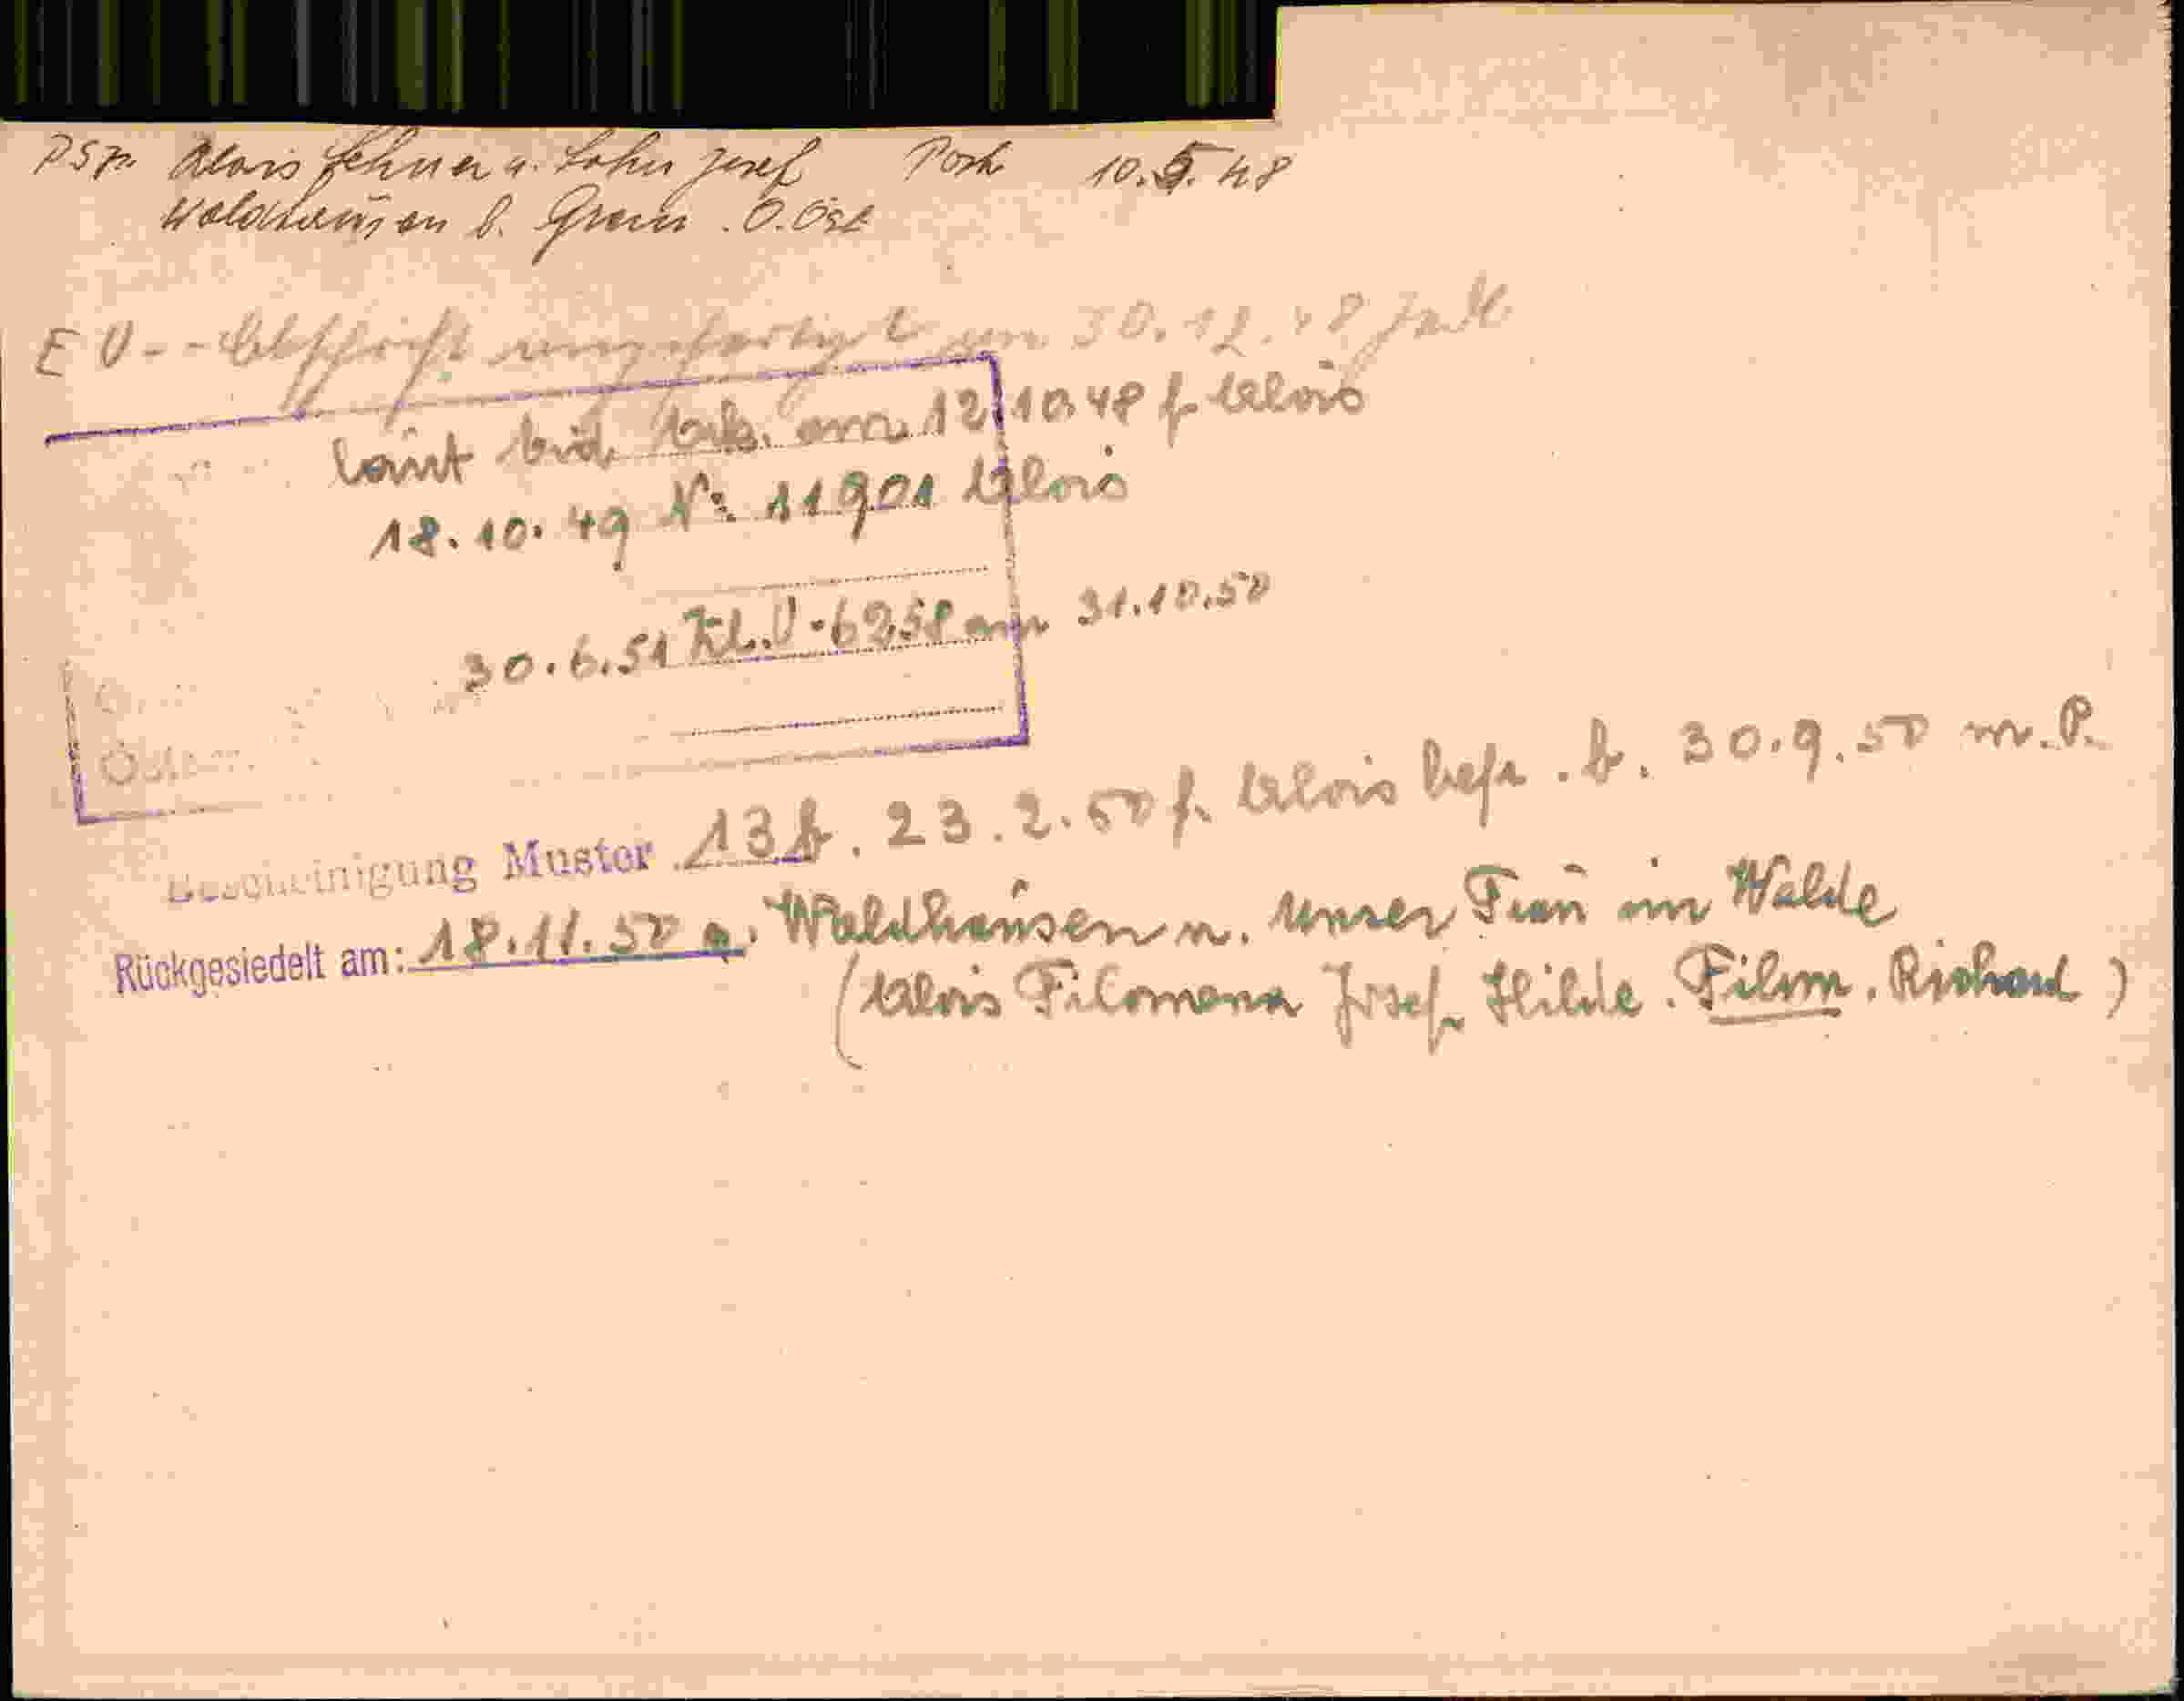 Alois Lehner u. Sohn Josef Post 10.5.48
Waldhausen b. Grein. O.Öst
EU - Abschrift angefertigt am 30.12.48
laut am 12.10.48 f. Alois
18.10.49 Nr. 11901 Alois
30.6.51 Zl. U-6258 am 31.10.50
Bescheinigung Muster 13b. 23.2.50 f. Alois befr. b. 30.9.50 m.P.
Rückgesiedelt am: 18.11.50 a. Waldhausen n. Unser Frau im Walde
(Alois Filomena Josef Hilde. Filom. Richard)